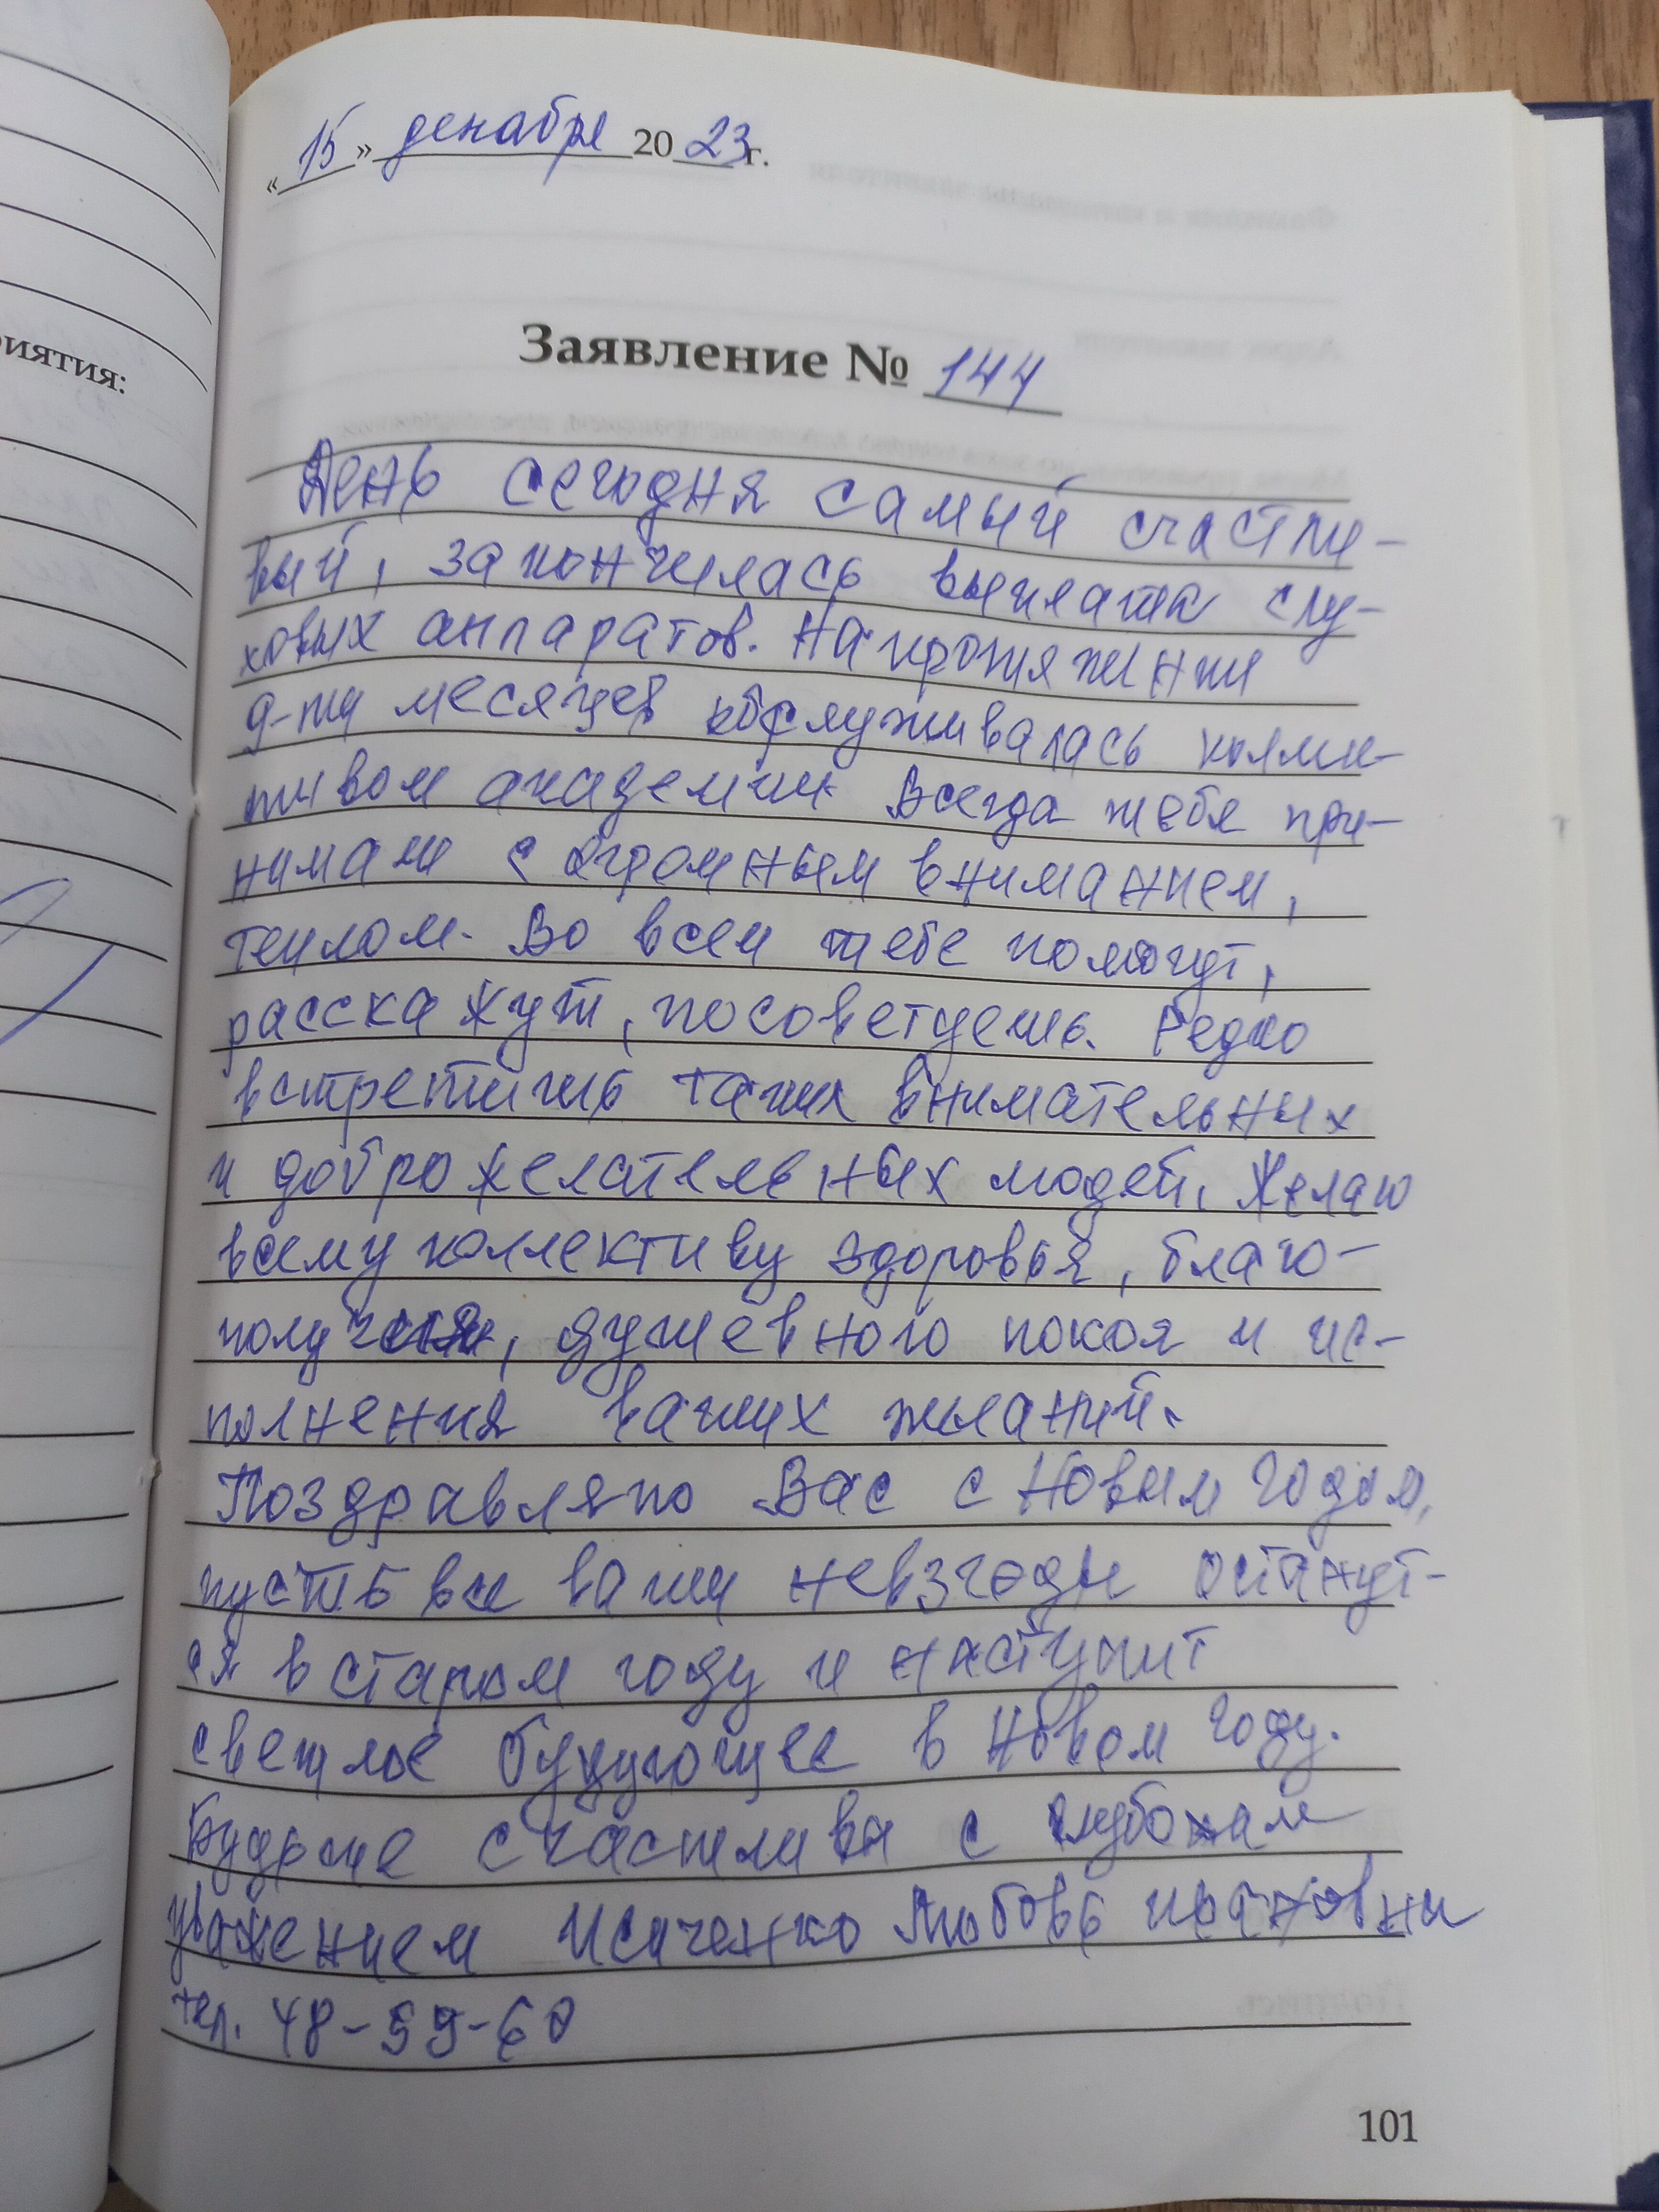 «15» декабря 2023г.
риятия:
Заявление № 144
День сегодня самый счастли-
вый, закончилась выплата слу-
ховых аппаратов. На протяжении
9-ти месяцев обслуживалась
академии Всегда тебя при-
нимали с огромным вниманием,
теплом. Во всем тебе помогут,
расскажут, посоветуешь. Редко
встретишь таких внимательных
и доброжелательных людей. Желаю
всему коллективу здоровья, благо-
получия, душевного покоя и ис-
полнения ваших желаний.
Поздравляю Вас с Новым годом,
пусть все ваши невзгоды останут-
ся в старом году и наступит
светлое будущее в Новом году.
Будьте счастливы с глубоким
уважением Исаченко Любовь Ивановны
тел. 48-59-60
101